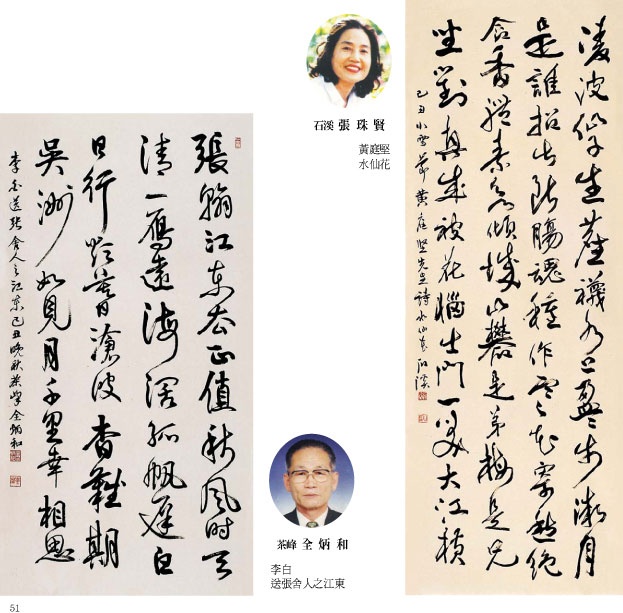 凌波仙子生塵襪水上盈盈步微月
是誰招此斷腸魂種作寒花寄愁絕
含香體素欲傾城山礬是弟梅是兄
坐對真成被花惱出門一笑大江橫
己丑小雪節黃庭堅先生詩水仙花石溪
石溪 張珠賢
黃庭堅
水仙花
張翰江東去正值秋風時天
清一鴈遠海闊孤帆遲白
日行欲暮滄波杳難期
吳洲如見月千里幸相思
李白送張舍人之江東己丑晚秋茶峯全炳和
茶峰 全炳和
李白
送張舍人之江東
51